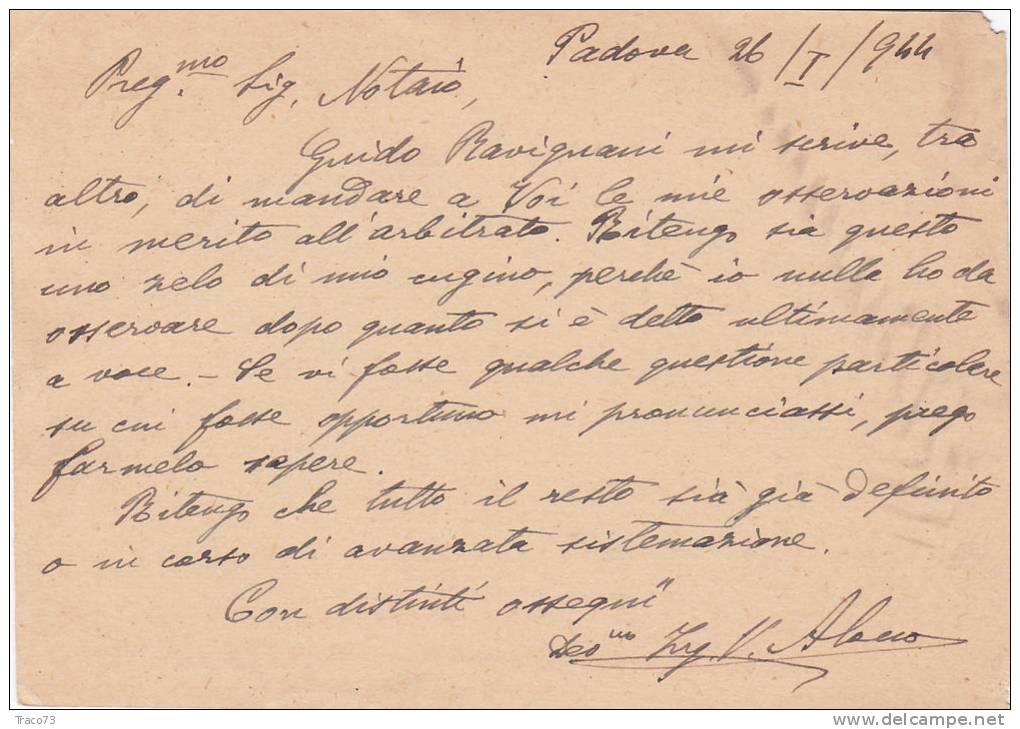 Padova 26/I/944
Preg.mo Sig. Notaio,
Guido Ravignani mi scrive, tra
altro, di mandare a Voi le mie osservazioni
in merito all'arbitrato. Ritengo sia questo
uno zelo di mio cugino, perchè io nulla ho da
osservare dopo quanto si è detto ultimamente
a voce. – Se vi fosse qualche questione particolare
su cui fosse opportuno mi pronunciassi, prego
farmelo sapere.
Ritengo che tutto il resto sia già definito
o in corso di avanzata sistemazione.
Con distinti ossequi
Dev.mo Ing. V.
Traco73
www.delcampe.net